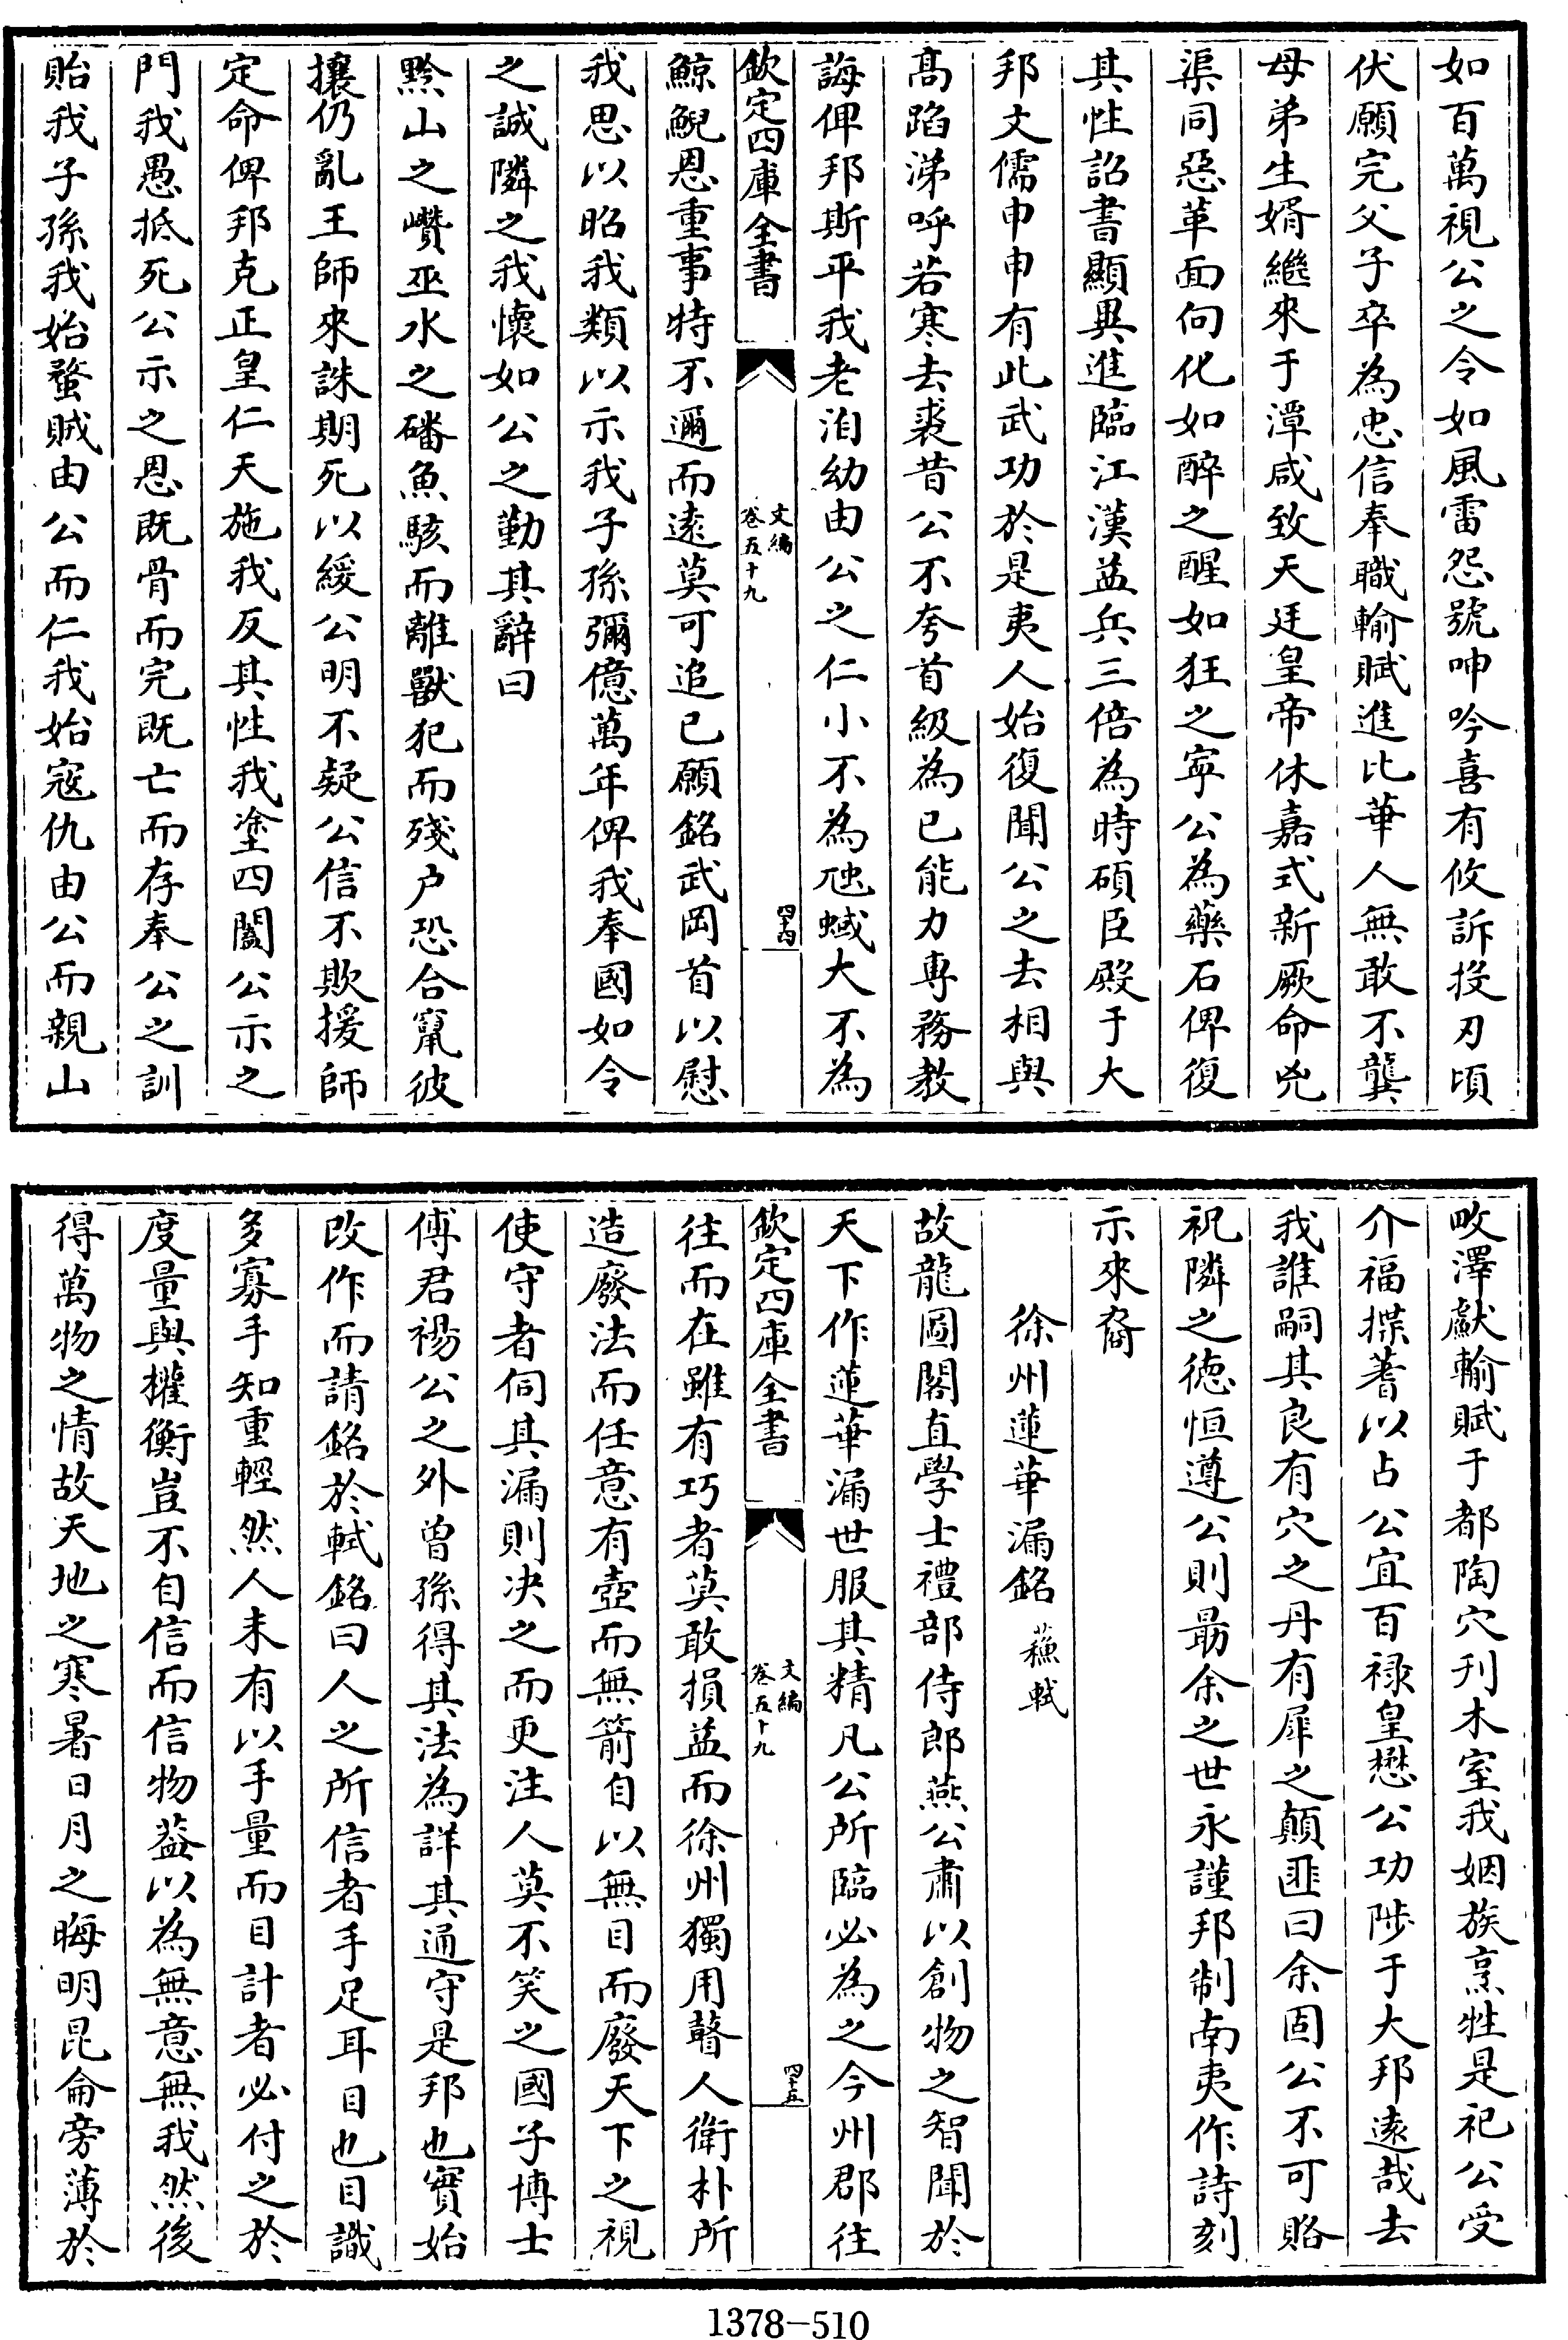 如百萬視公之令如風雷怨號呻吟喜有攸訴投刃頃
伏願完父子卒為忠信奉職輸賦進比華人無敢不龔
母弟生婿繼來于潭咸致天廷皇帝休嘉式新厥命兇
渠同惡革面向化如醉之醒如狂之寧公為藥石俾復
其性詔書顯異進臨江漢益兵三倍為時碩臣殿于大
邦文儒申申有此武功於是夷人始復聞公之去相與
髙蹈涕呼若寒去裘昔公不夸首級為已能力專務教
誨俾邦斯平我老洎幼由公之仁小不為虺蜮大不為
欽定四庫全書
文編
卷五十九
四十四
鯨鯢恩重事特不邇而逺莫可追已願銘武岡首以慰
我思以昭我類以示我子孫彌億萬年俾我奉國如令
之誠隣之我懷如公之勤其辭曰
黔山之巑巫水之磻魚駭而離獸犯而殘户恐合竄彼
攘仍亂王師來誅期死以緩公明不疑公信不欺援師
定命俾邦克正皇仁天施我反其性我塗四闔公示之
門我愚抵死公示之恩既骨而完既亡而存奉公之訓
貽我子孫我始蝥賊由公而仁我始寇仇由公而親山
畋澤獻輸賦于都陶穴刋木室我姻族烹牲是祀公受
介福揲蓍以占公宜百祿皇懋公功陟于大邦逺哉去
我誰嗣其良有穴之丹有犀之顛匪曰余固公不可賂
祝隣之徳恒遵公則勗余之世永謹邦制南夷作詩刻
示來裔
徐州蓮華漏銘 蘇軾
故龍圖閣直學士禮部侍郎燕公肅以創物之智聞於
天下作蓮華漏世服其精凡公所臨必為之今州郡往
欽定四庫全書
文編
卷五十九
四十五
往而在雖有巧者莫敢損益而徐州獨用瞽人衛朴所
造廢法而任意有壺而無箭自以無目而廢天下之視
使守者伺其漏則决之而更注人莫不笑之國子博士
傅君裼公之外曾孫得其法為詳其通守是邦也實始
改作而請銘於軾銘曰人之所信者手足耳目也目識
多寡手知重輕然人未有以手量而目計者必付之於
度量與權衡豈不自信而信物葢以為無意無我然後
得萬物之情故天地之寒暑日月之晦明昆侖旁薄於
1378-510